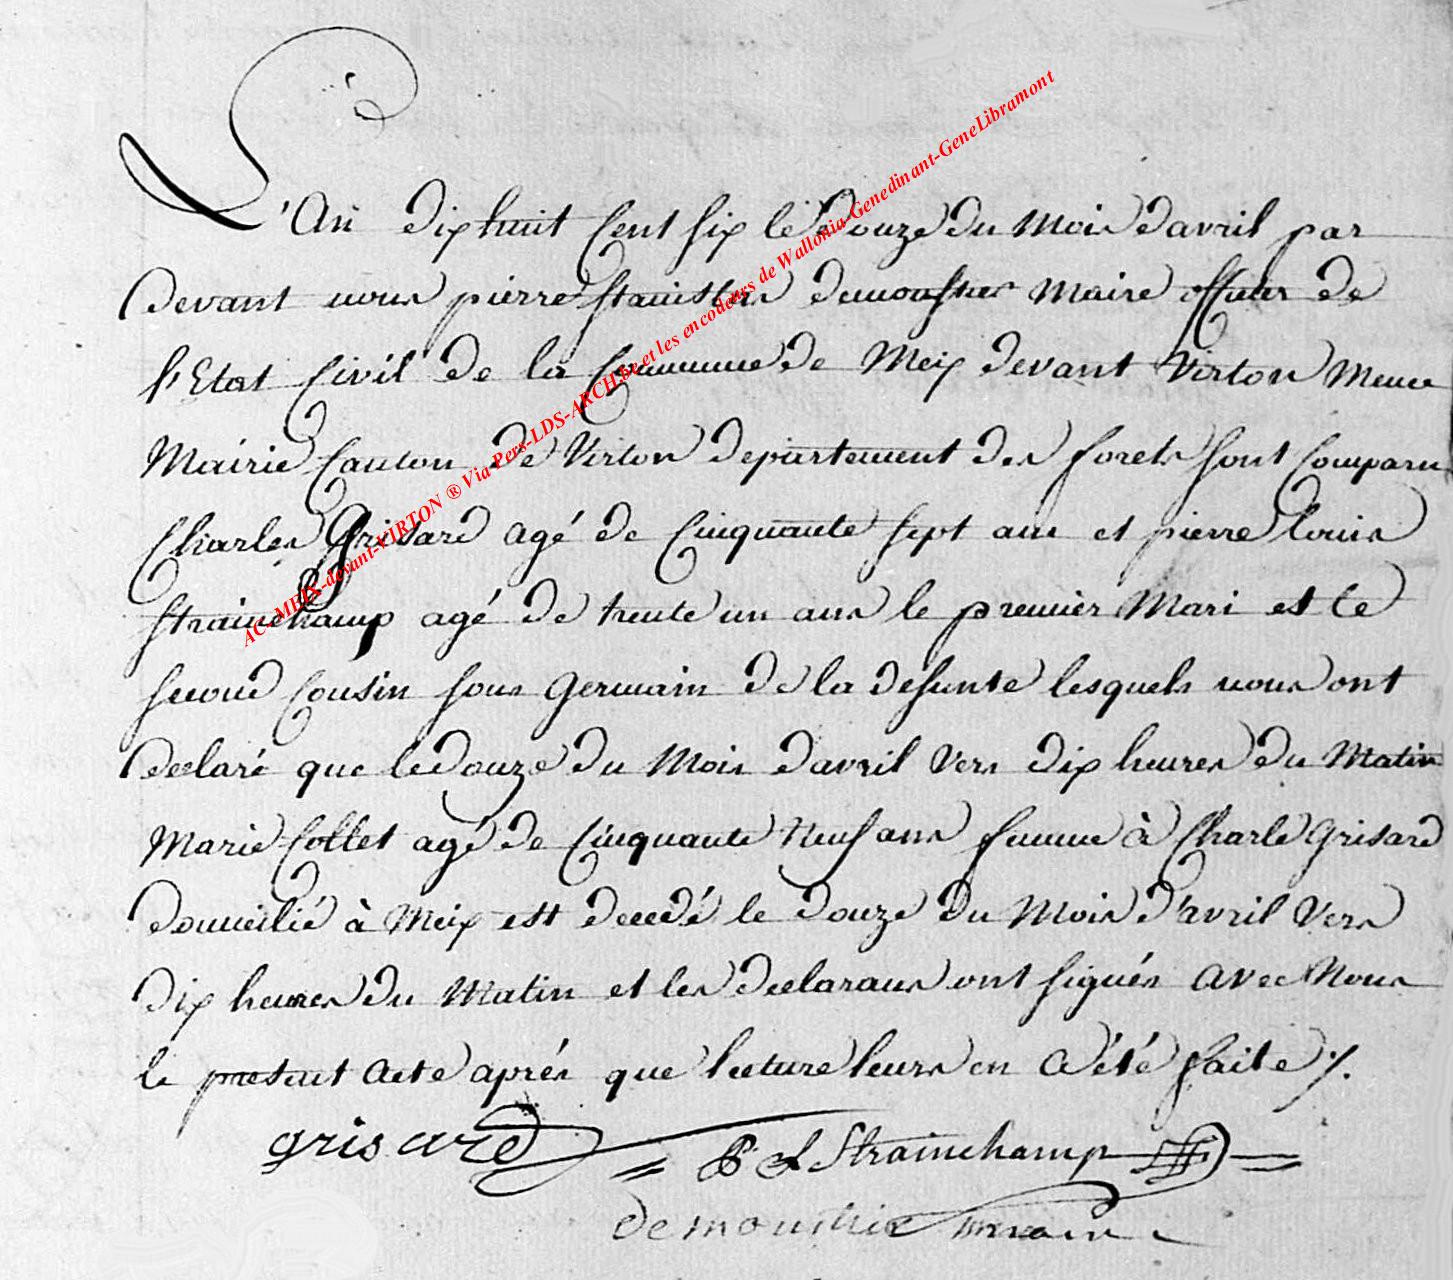 L'An dixhuit Cent six le douze du Mois davril par
devant nous pierre stanislas demoustier Maire officier de
l'Etat Civil de la Commune de Meix devant Virton Meme
Mairie Canton de Virton departement des forets sont Comparu
Charles Grisard agé de Cinquante sept ans et pierre louis
strainchamp agé de trente un ans le premier Mari est le
second Cousin sous Germain de la defunte lesquels nous ont
declaré que le douze du Mois davril vers dix heures du Matin
Marie Collet agé de Cinquante Neuf ans femme à Charle Grisard
domicilié à Meix est decedé le douze du Mois d'avril Vers
dix heures du Matin et les declarans ont signés avec Nous
le present Acte aprés que lecture leurs en A été faite /.
grisard
P L Strainchamp
demoustier maire
AC-MEIX-devant-VIRTON ® Via Pers-LDS-ARCH.be et les encodeurs de Wallonia-Genedinant-GeneLibramont